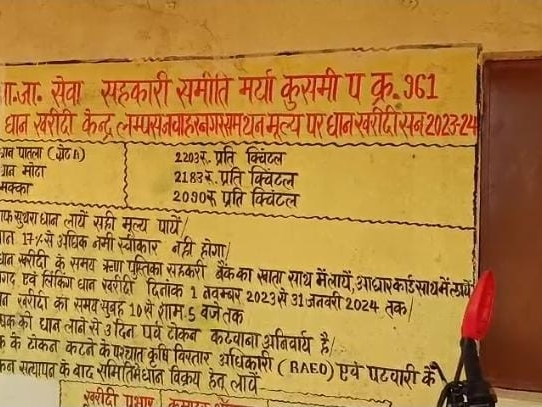 ा.जा. सेवा सहकारी समीति मर्या कुसमी प क्र. 961
धान खरीदी केन्द्र लम्पस जवाहरनगर समर्थन मूल्य पर धान खरीदी सन 2023-24
धान पातला (ग्रेट A) 2203रु. प्रति क्विंटल
धान मोटा 2183रु. प्रति क्विंटल
मक्का 2090रु प्रति क्विंटल
साफ सुथरा धान लायें सही मूल्य पायें/
धान 17% से अधिक नमी स्वीकार नही होगा/
धान खरीदी के समय ऋण पुस्तिका सहकारी बैंक का खाता साथ में लायें, आधार कार्ड साथ में लायें
नगद एवं लिंकिंग धान खरीदी दिनांक 1 नवम्बर 2023 से 31 जनवरी 2024 तक/
धान खरीदी का समय सुबह 10 से शाम. 5 वजे तक
को धान लाने से 3 दिन पूर्व टोकन कटवाना अनिवार्य है/
के टोकन कटने के पश्चात कृषि विस्तार अधिकारी (RAEO) एवं पटवारी के
सत्यापन के बाद समिति में धान विक्रय हेतु लावें
खरीदी प्रभारी